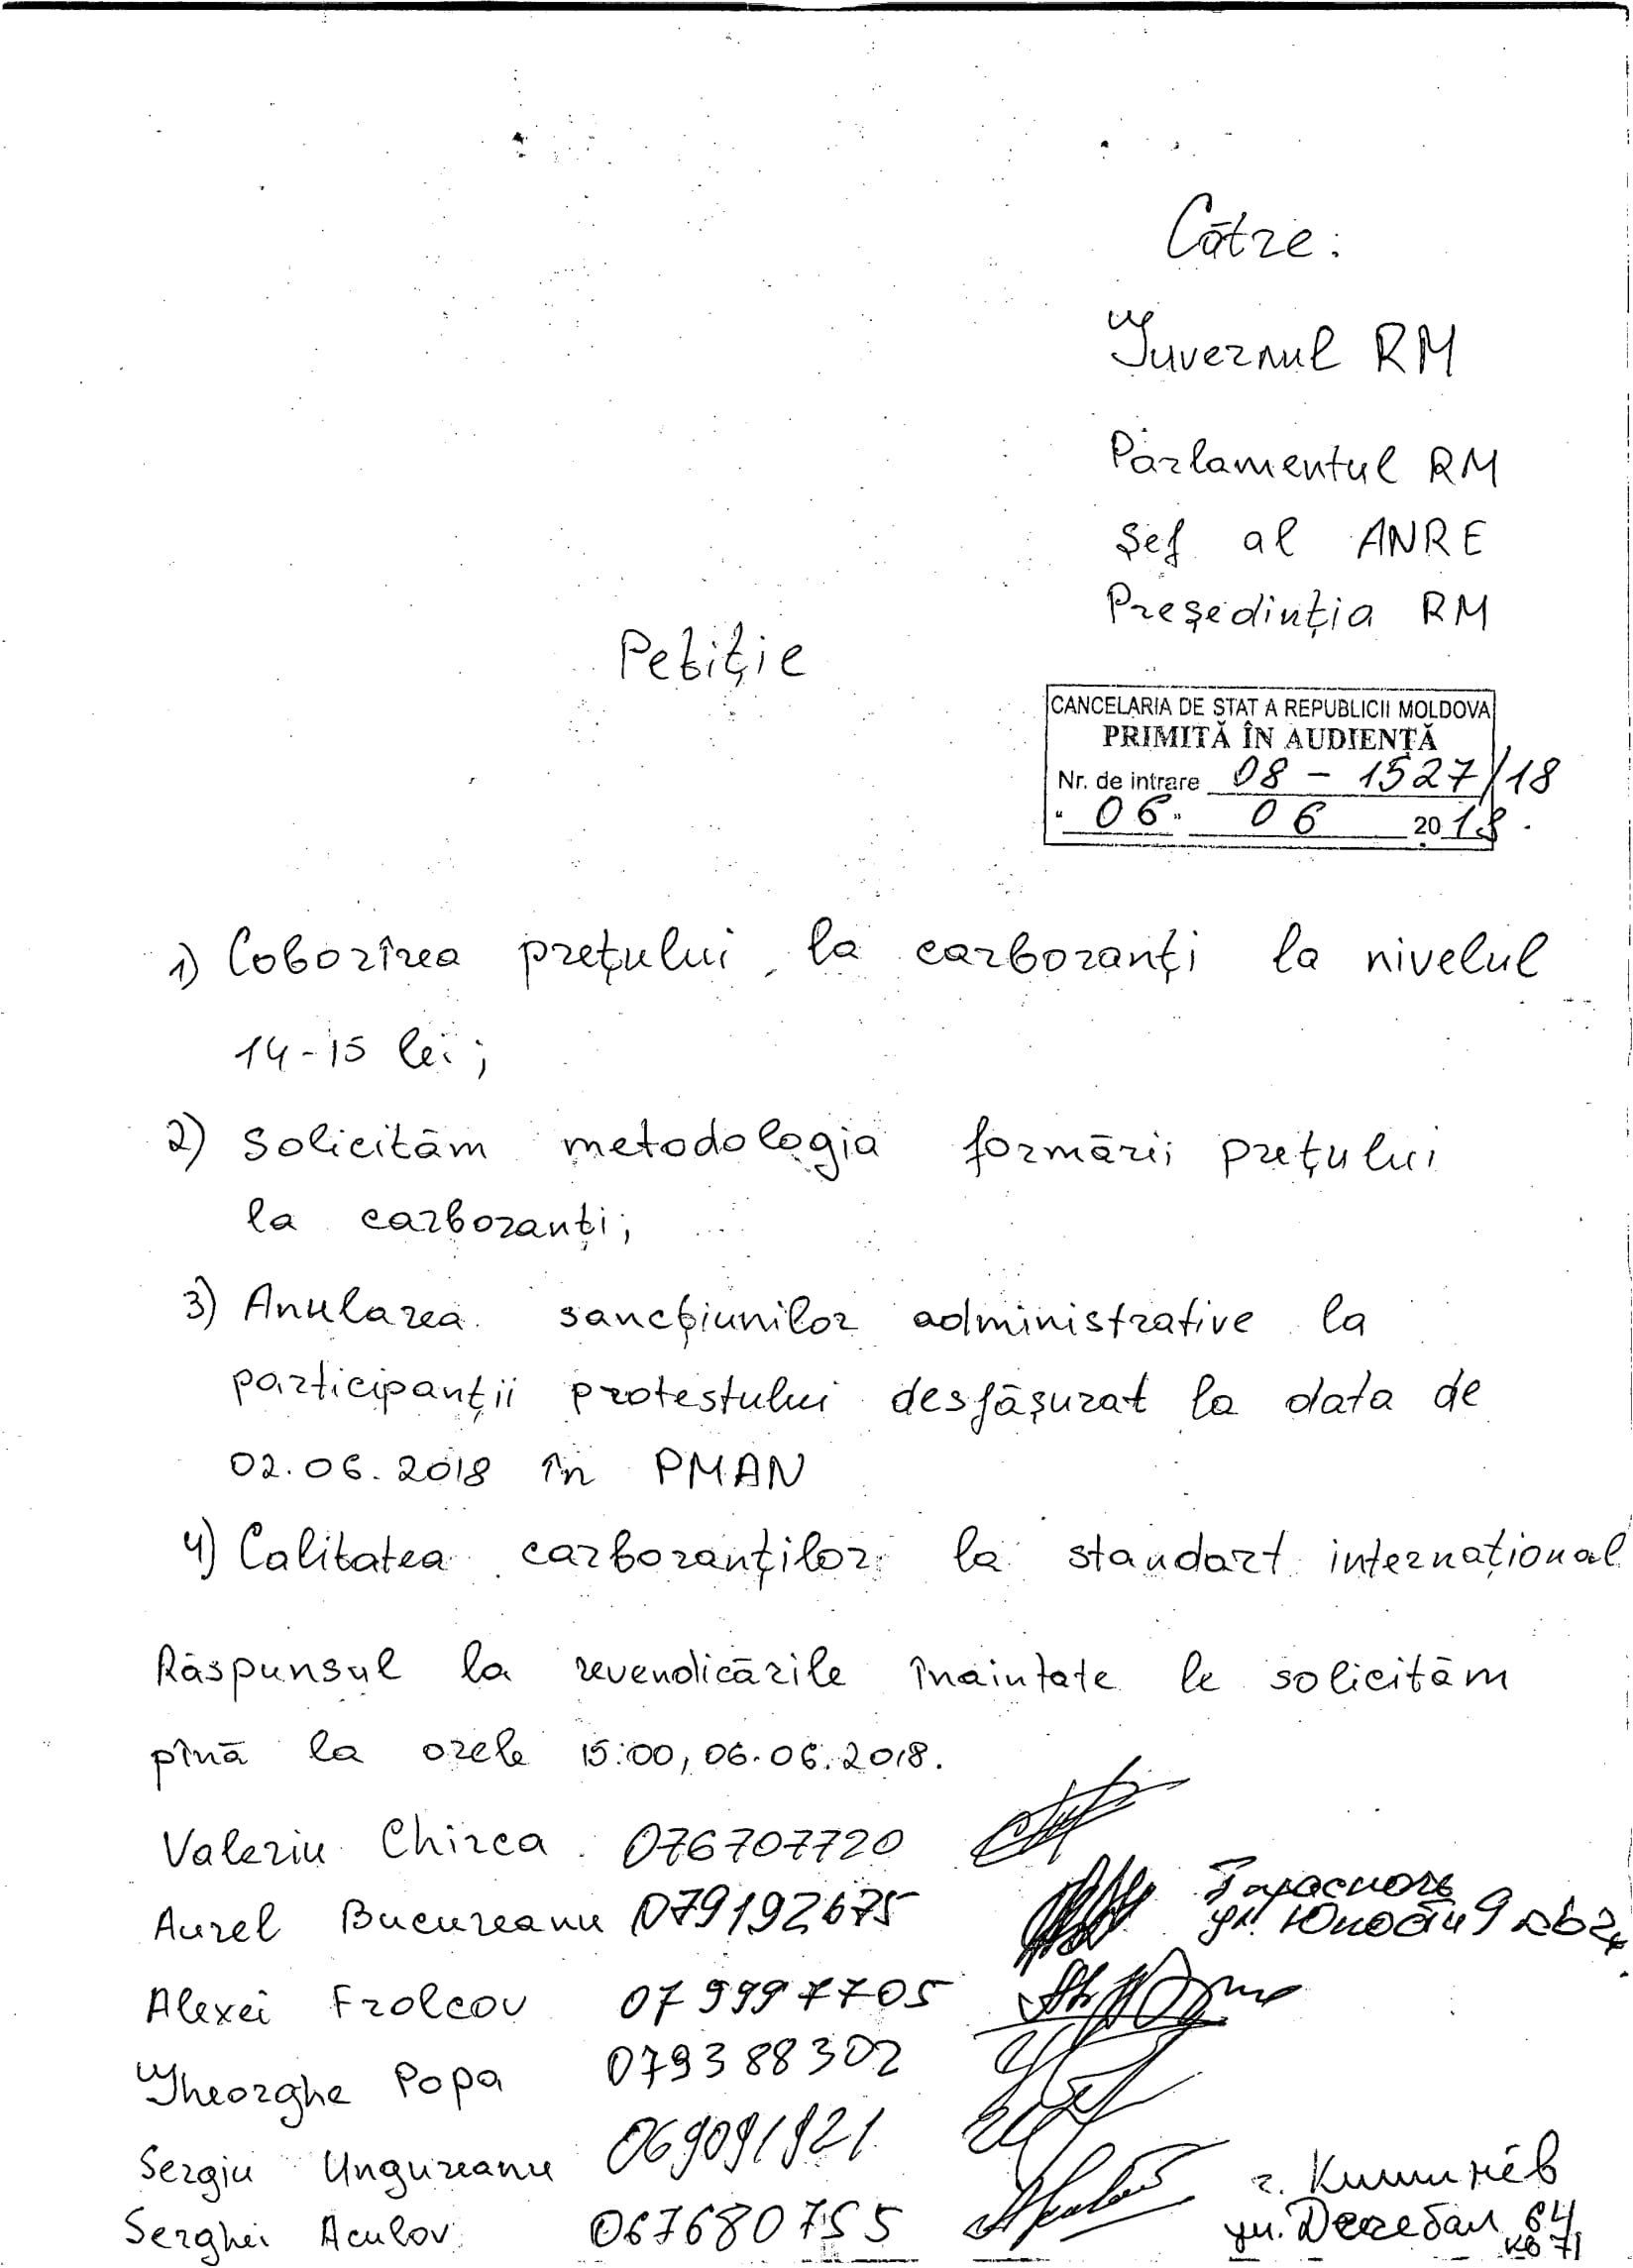 Către:
Guvernul RM
Parlamentul RM
Șef al ANRE
Președinția RM
Petiție
CANCELARIA DE STAT A REPUBLICII MOLDOVA
PRIMITĂ ÎN AUDIENȚĂ
Nr. de intrare 08 - 1527/18
"06" 06 2018.
1) Coborîrea prețului la carboranți la nivelul
14-15 lei;
2) Solicităm metodologia formării prețului
la carboranți;
3) Anularea sancțiunilor administrative la
participanții protestului desfășurat la data de
02.06.2018 în PMAN
4) Calitatea carboranților la standart internațional
Răspunsul la revendicările înaintate le solicităm
pînă la orele 15:00, 06.06.2018.
Valeriu Chirca 076707720
Aurel Bucureanu 079192675
ул. 9
Alexei Frolcov 079997705
Gheorghe Popa 079388302
Sergiu Ungureanu 069091921
Serghei Aculov 067680755
г. Кишинёв
ул. Дечебал 64
кв 71